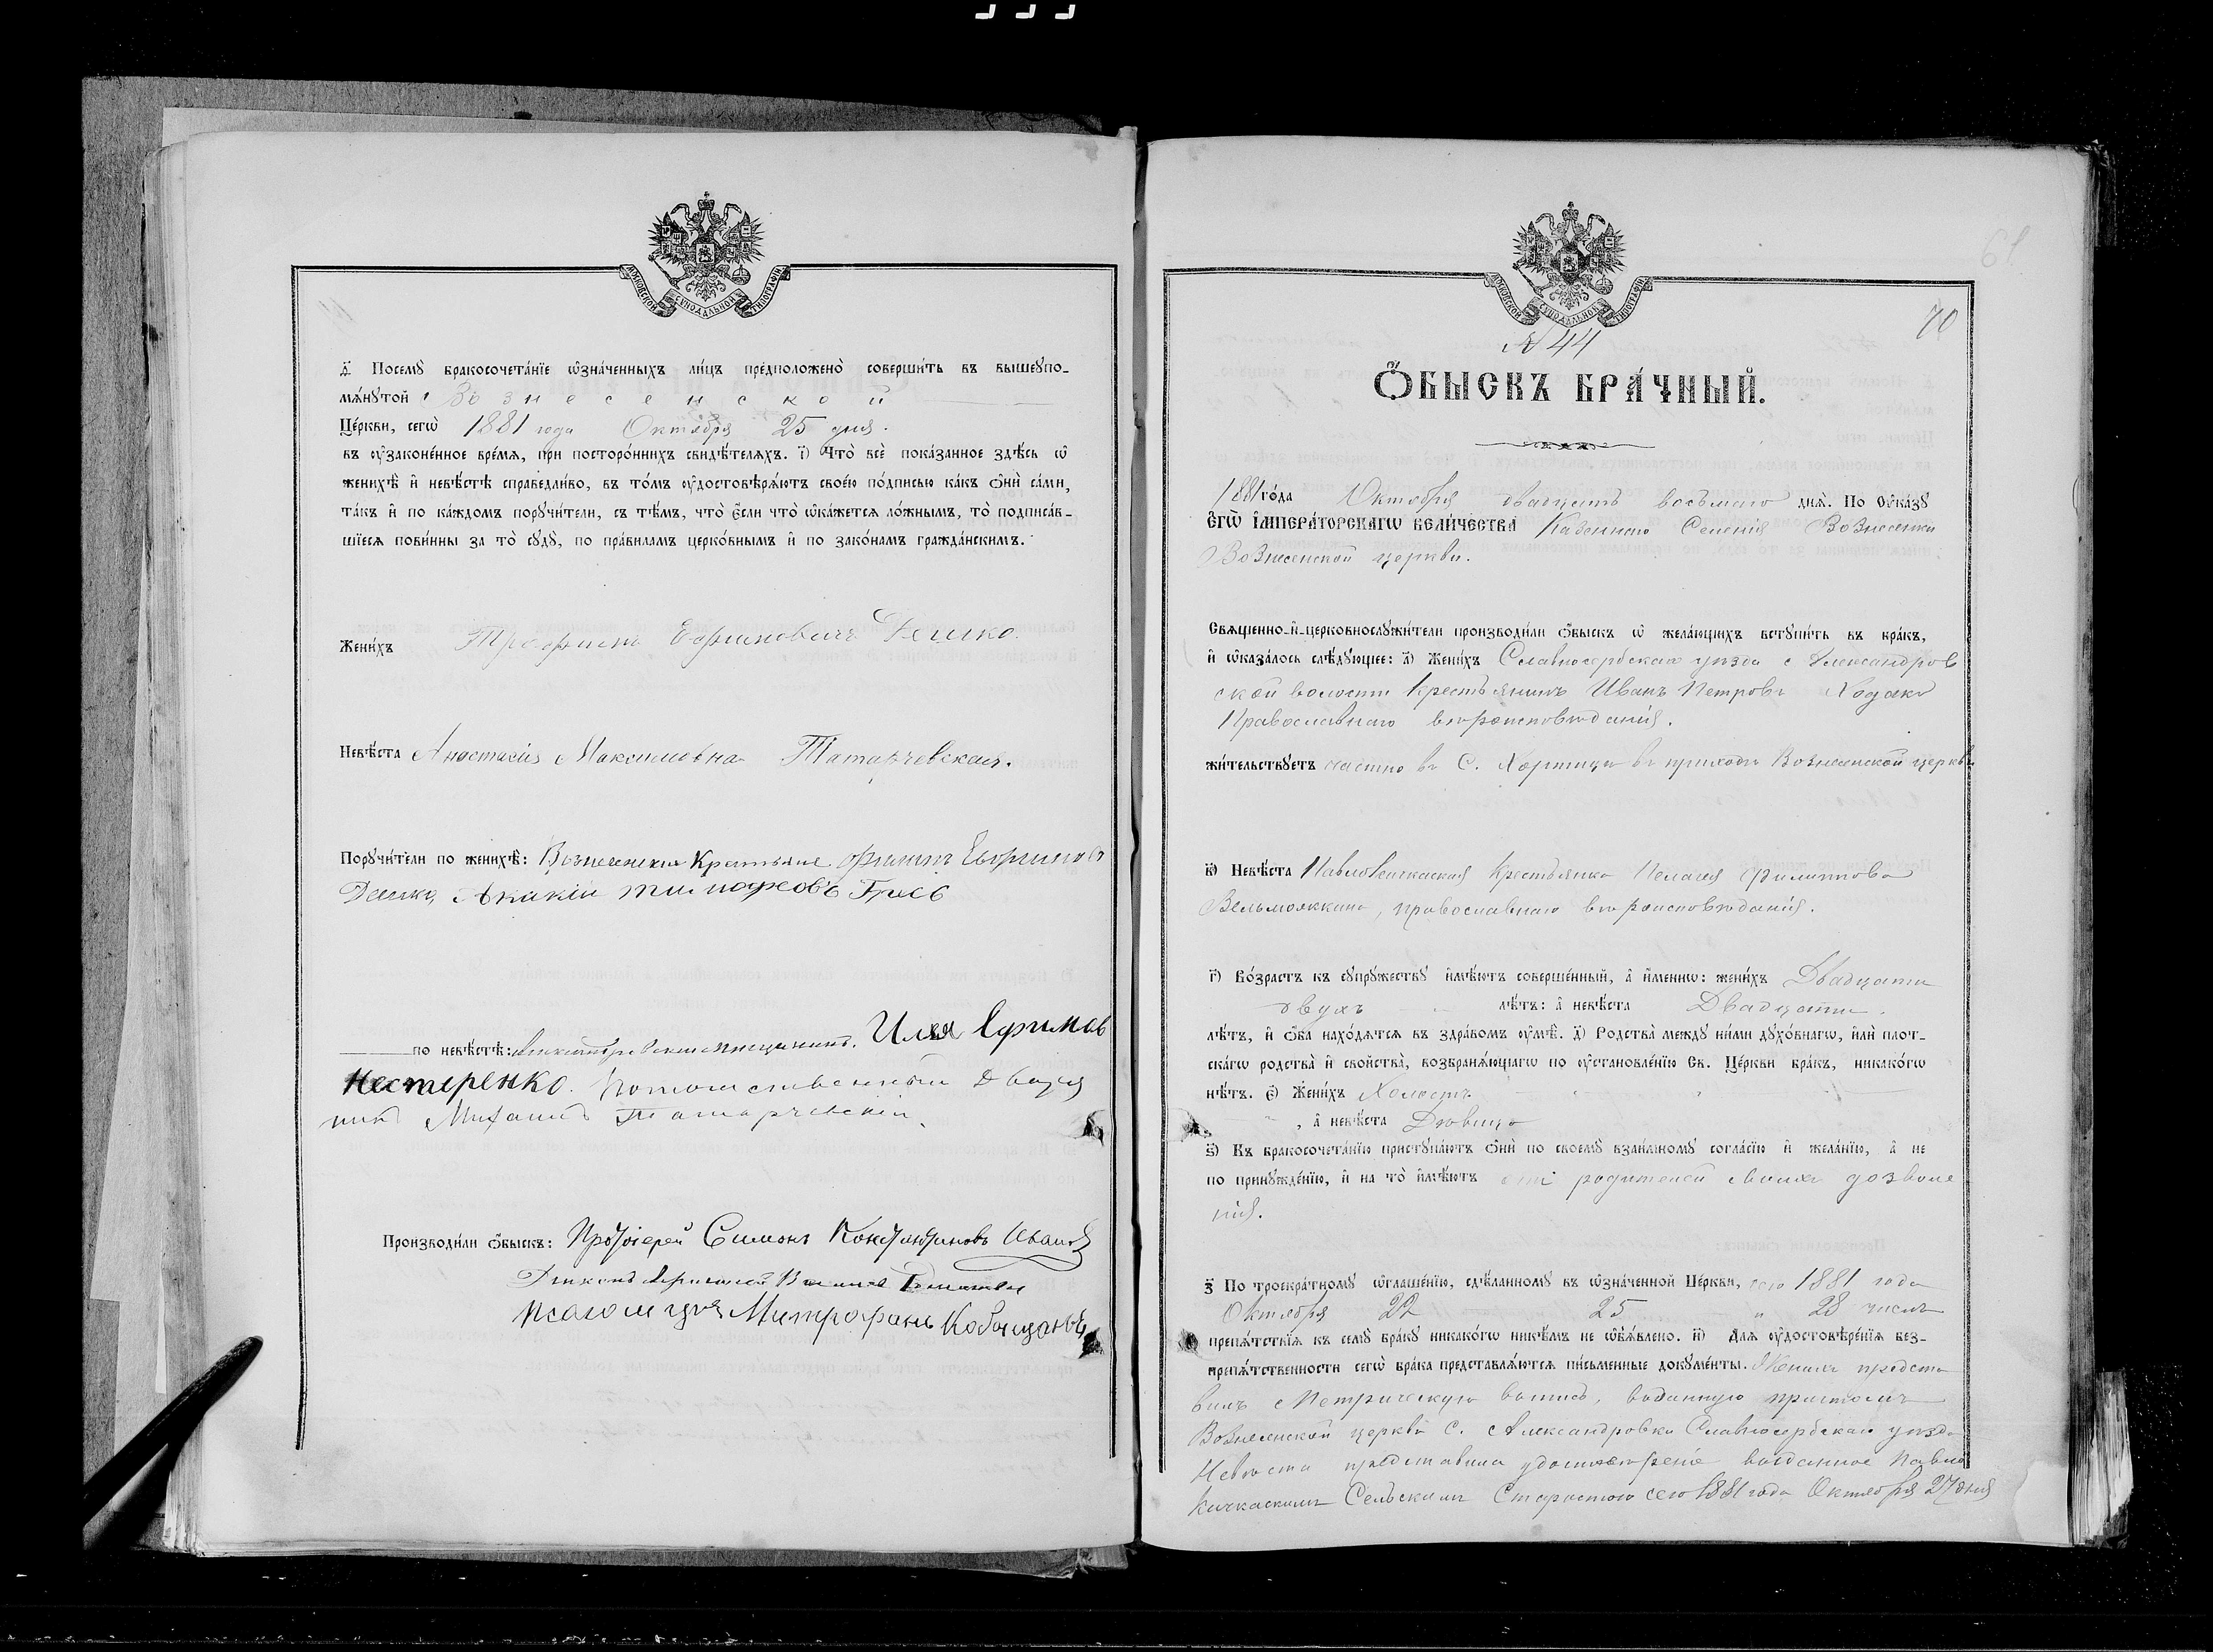 МОСКОВСКОЙ СѴНОДАЛЬНОЙ ТИПОГРАФІИ
д҃ Посемꙋ̀ бракосочета́нїе ѡ҆зна́ченныхъ ли́цъ предположено̀ соверши́ть въ вышеꙋпо-
мѧ́нꙋтой Вознесенской
Це́ркви, сегѡ̀ 1881 года Октября 25 дня.
въ ᲂу҆законе́нное вре́мѧ, при посторо́ннихъ свидѣ́телѧхъ. і҃) Что̀ всѐ пока́занное здѣ́сь ѡ҆
женихѣ̀ и҆ невѣ́стѣ справедли́во, въ то́мъ ᲂу҆достовѣрѧ́ютъ свое́ю по́дписью ка́къ ѻ҆нѝ са́ми,
та́къ и҆ по ка́ждомъ порꙋчи́тели, съ тѣ́мъ, что̀ є҆́сли что̀ ѡ҆ка́жетсѧ ло́жнымъ, то̀ подписа́в-
шїесѧ пови́нны за то̀ сꙋдꙋ̀, по пра́виламъ церко́внымъ и҆ по зако́намъ гражда́нскимъ.
Жени́хъ Трофимъ Ефимовичъ Дешко.
Невѣ́ста Анастасія Максимовна Татарчевская.
Порꙋчи́тели по женихѣ̀: Вознесенскіе Крестьяне Филипъ Ефимовъ
Дешко, Акакій Тимофеовъ Гресь
по невѣ́стѣ: Александровскій мещанинъ. Илья Ефимов
Нестеренко. Потомственный Дворя
нинъ Михаилъ Татарчевскій.
Производи́ли ѻ҆́быскъ: Протоіерей Симонъ Константиновъ Ивановъ
Діаконъ
Псаломщикъ Митрофанъ Кобанцовъ
61
МОСКОВСКОЙ СѴНОДАЛЬНОЙ ТИПОГРАФІИ
70
№ 44
Ѻ҆́БЫСКЪ БРА́ЧНЫЙ.
1881 го́да Октября двадцать восьмаго днѧ̀. По Оу҆ка́зꙋ
Є҆гѡ̀ І҆мпера́торскагѡ вели́чества Казеннаго Селенія Вознесенки
Вознесенской церкви.
Свѧще́нно-и҆-церковнослꙋжи́тели производи́ли ѻ҆́быскъ ѡ҆ жела́ющихъ встꙋпи́ть въ бра́къ,
и҆ ѡ҆каза́лось слѣ́дꙋющее: а҃) Жени́хъ Славяносербскаго уѣзда с Александров
ской волости Крестьянинъ Иванъ Петровъ Ходако
Православнаго вѣроисповѣданія.
жи́тельствꙋетъ частно въ С. Хортицы въ приходѣ Вознесенской церкви.
в҃) Невѣ́ста Павлокичкаская Крестьянка Пелагея Филиппова
Вельможкина, православнаго вѣроисповѣданія.
г҃) Во́зрастъ къ сꙋпрꙋ́жествꙋ и҆мѣ́ютъ соверше́нный, а҆ и҆́меннѡ: жени́хъ Двадцати
двухъ лѣ́тъ: а҆ невѣ́ста Двадцати.
лѣ́тъ, и҆ ѻ҆́ба нахо́дѧтсѧ въ здра́вомъ ᲂу҆мѣ̀. д҃) Родства̀ междꙋ ни́ми дꙋхо́внагѡ, и҆лѝ плот-
ска́гѡ родства̀ и҆ сво́йства, возбранѧ́ющагѡ по ᲂу҆становле́нїю Св. Це́ркви бра́къ, никако́гѡ
нѣ́тъ. є҃) Жени́хъ Холостъ
, а҆ невѣ́ста Дѣвица
ѕ҃) Къ бракосочета́нїю пристꙋпа́ютъ ѻ҆нѝ по своемꙋ̀ взаи́мномꙋ согла́сїю и҆ жела́нїю, а҆ не
по принꙋжде́нїю, и҆ на то̀ и҆мѣ́ютъ отъ родителей своихъ дозволе
нія.
з҃) По троекра́тномꙋ ѡ҆глаше́нїю, сдѣ́ланномꙋ въ ѡ҆зна́ченной Це́ркви, сего 1881 года
Октября 22 25 и 28 числъ
препѧ́тствїѧ къ семꙋ̀ бра́кꙋ никако́гѡ никѣ́мъ не ѡ҆б̾ѧ́влено. и҃) Длѧ ᲂу҆достовѣре́нїѧ без-
препѧ́тственности сегѡ̀ бра́ка представлѧ́ютсѧ пи́сьменные докꙋме́нты. Женихъ предста
вилъ Метрическую выпись, выданную причтомъ
Вознесенской церкви С. Александровки Славяносербскаго уѣзда
Невѣста представила удостовѣреніе выданное Павло
Кичкаскимъ Сельскимъ Старостою сего 1881 года Октября 27 дня